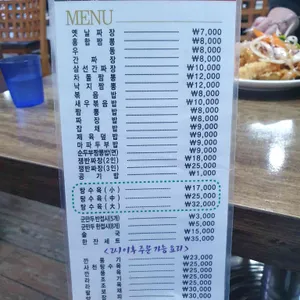 MENU
옛날짜장 ₩7,000
홍합짬뽕 ₩8,000
우동 ₩8,000
간짜장 ₩8,000
삼선간짜장 ₩10,000
차돌짬뽕 ₩12,000
낙지짬뽕 ₩12,000
볶음밥 ₩8,000
새우볶음밥 ₩10,000
짬뽕밥 ₩9,000
짜장밥 ₩8,000
잡채밥 ₩9,000
제육덮밥 ₩9,000
마파두부밥 ₩9,000
순두부짬뽕밥(면) ₩9,000
쟁반짜장(2인) ₩18,000
쟁반짜장(3인)
공기밥 ₩1,000
탕수육(小) ₩17,000
탕수육(中) ₩25,000
탕수육(大) ₩32,000
군만두 반접시(5개) ₩3,000
군만두 한접시(8개) ₩5,000
술국 ₩15,000
한잔세트 ₩35,000
<2시이후 주문 가능 요리>
₩23,000
₩25,000
₩30,000
₩30,000
₩30,000